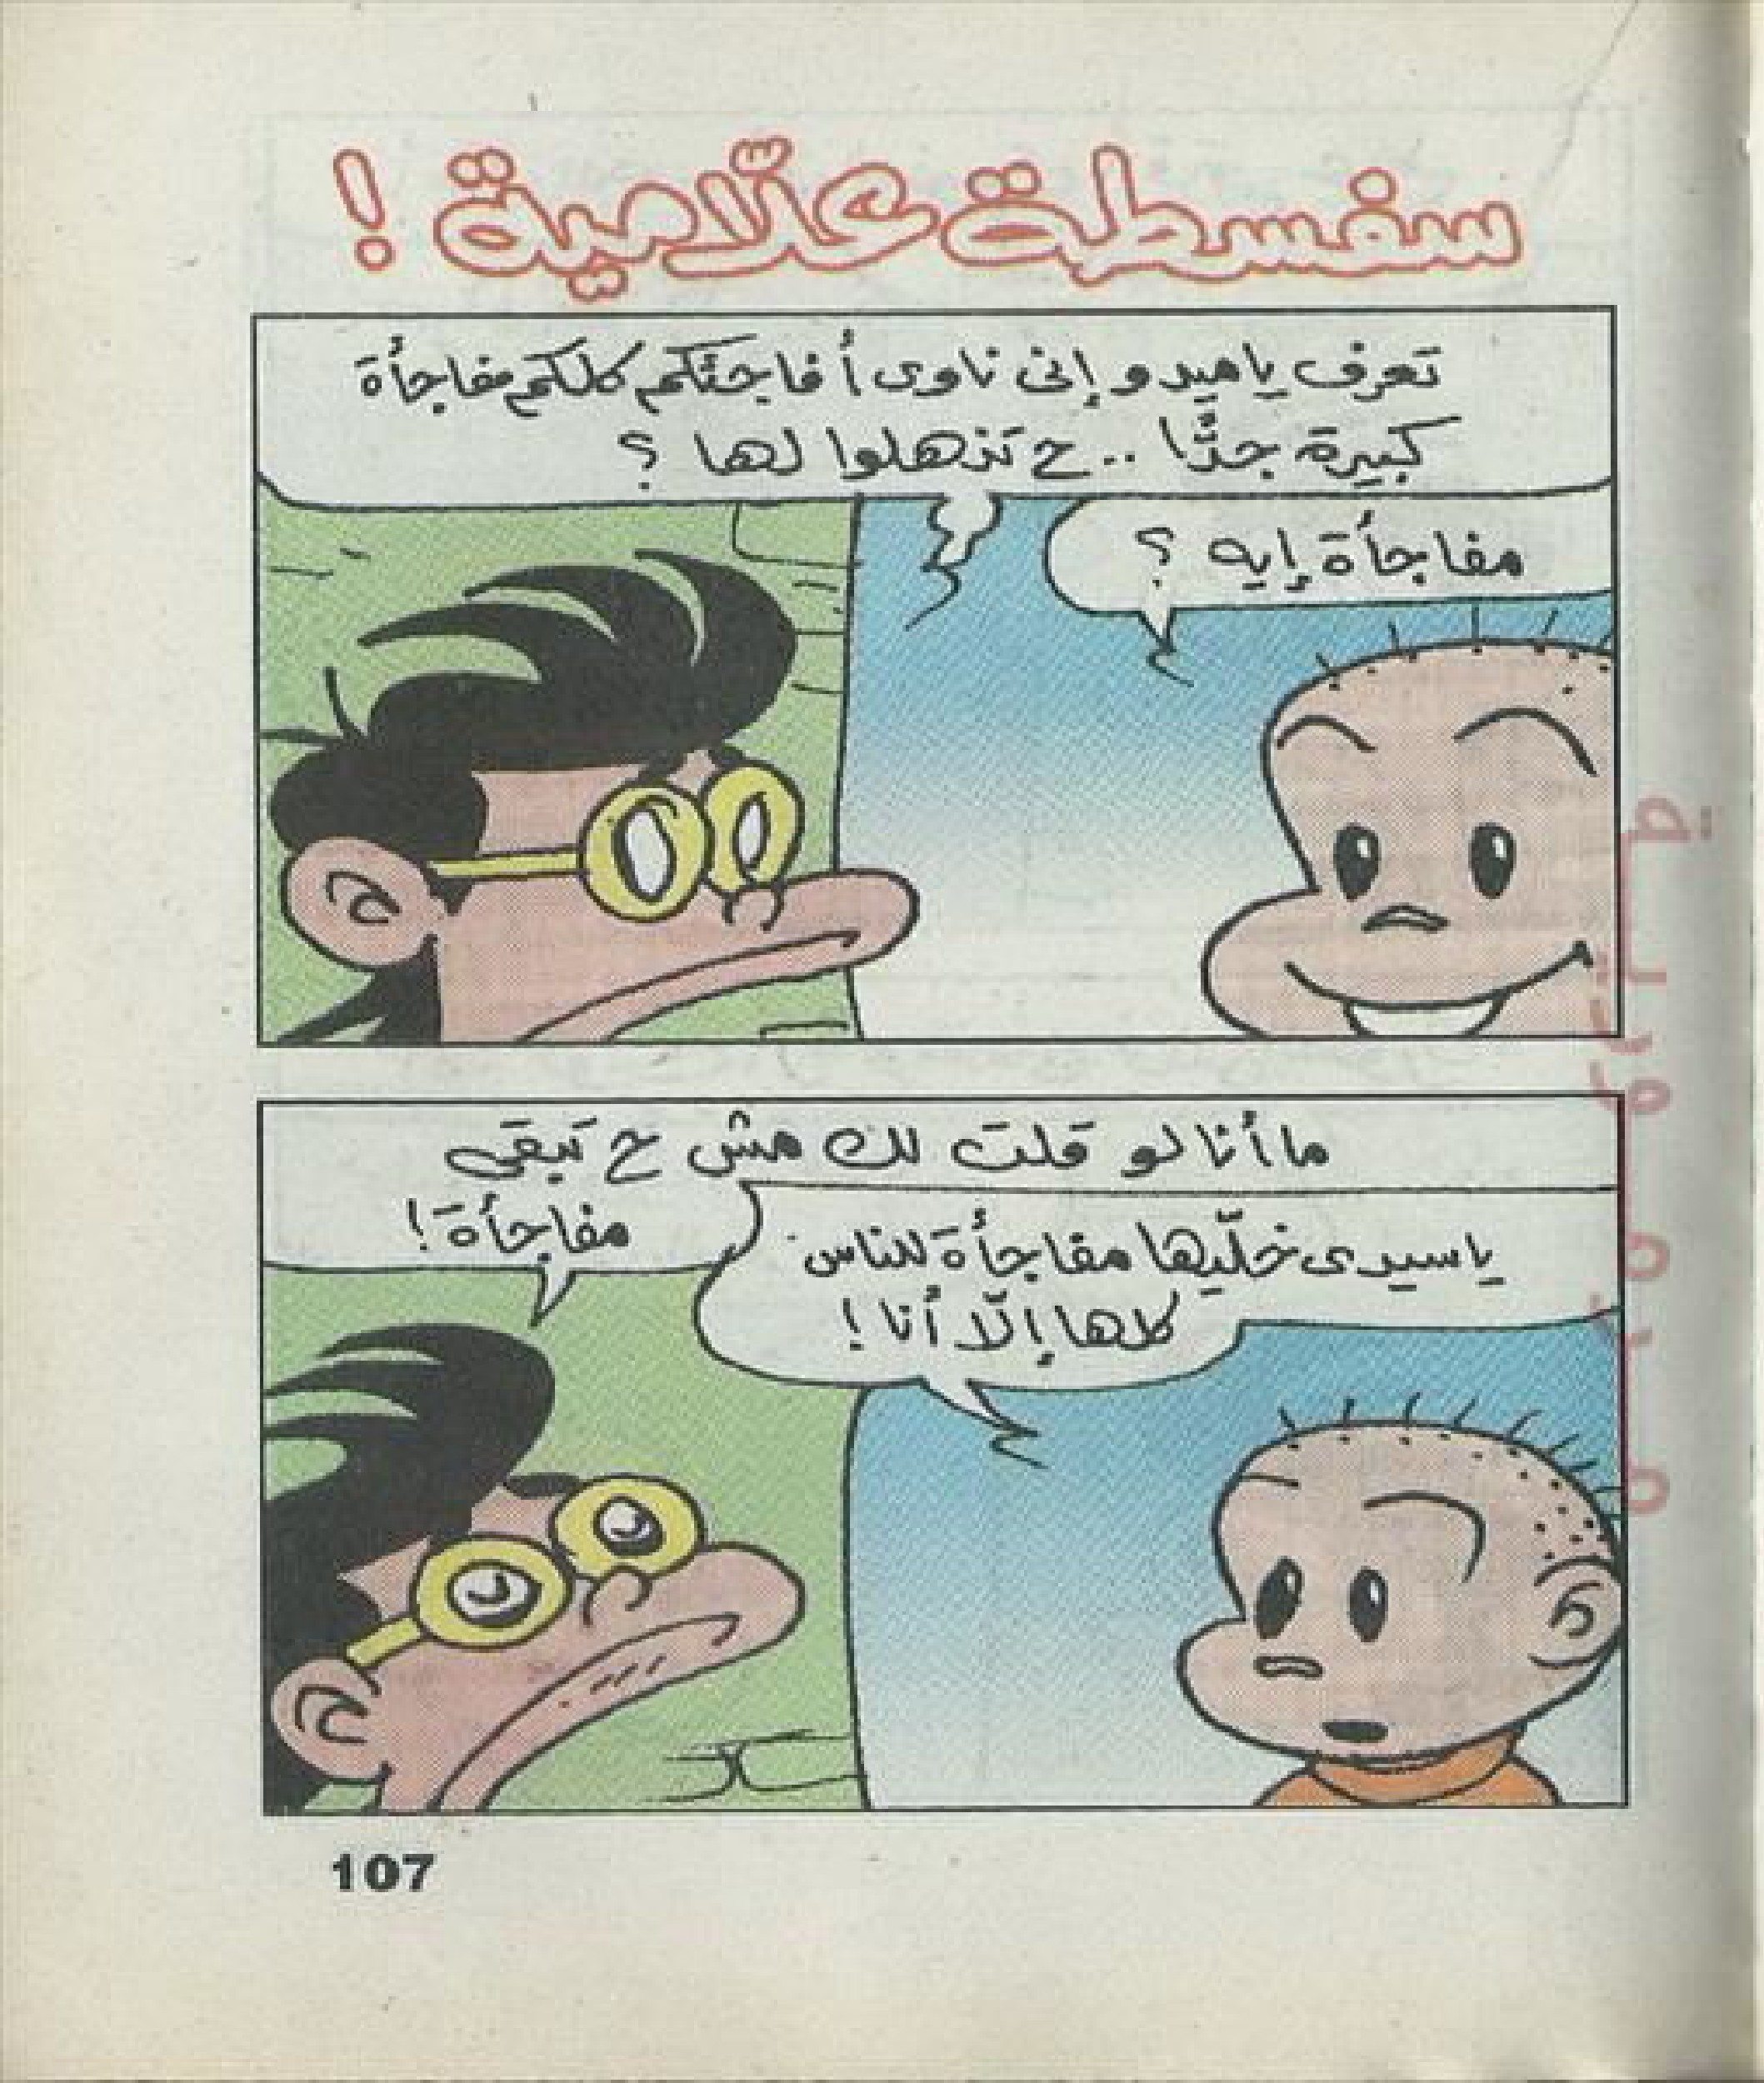 سفسطة علّامية !
تعرف ياميدو إنى ناوى أفاجئكم كلكم مفاجأة
كبيرة جدًّا .. ح تذهلوا لها ؟
مفاجأة إيه ؟
ما أنا لو قلت لك مش ح تبقى
مفاجأة !
ياسيدى خلّيها مفاجأة للناس
كلها إلّا أنا !
107